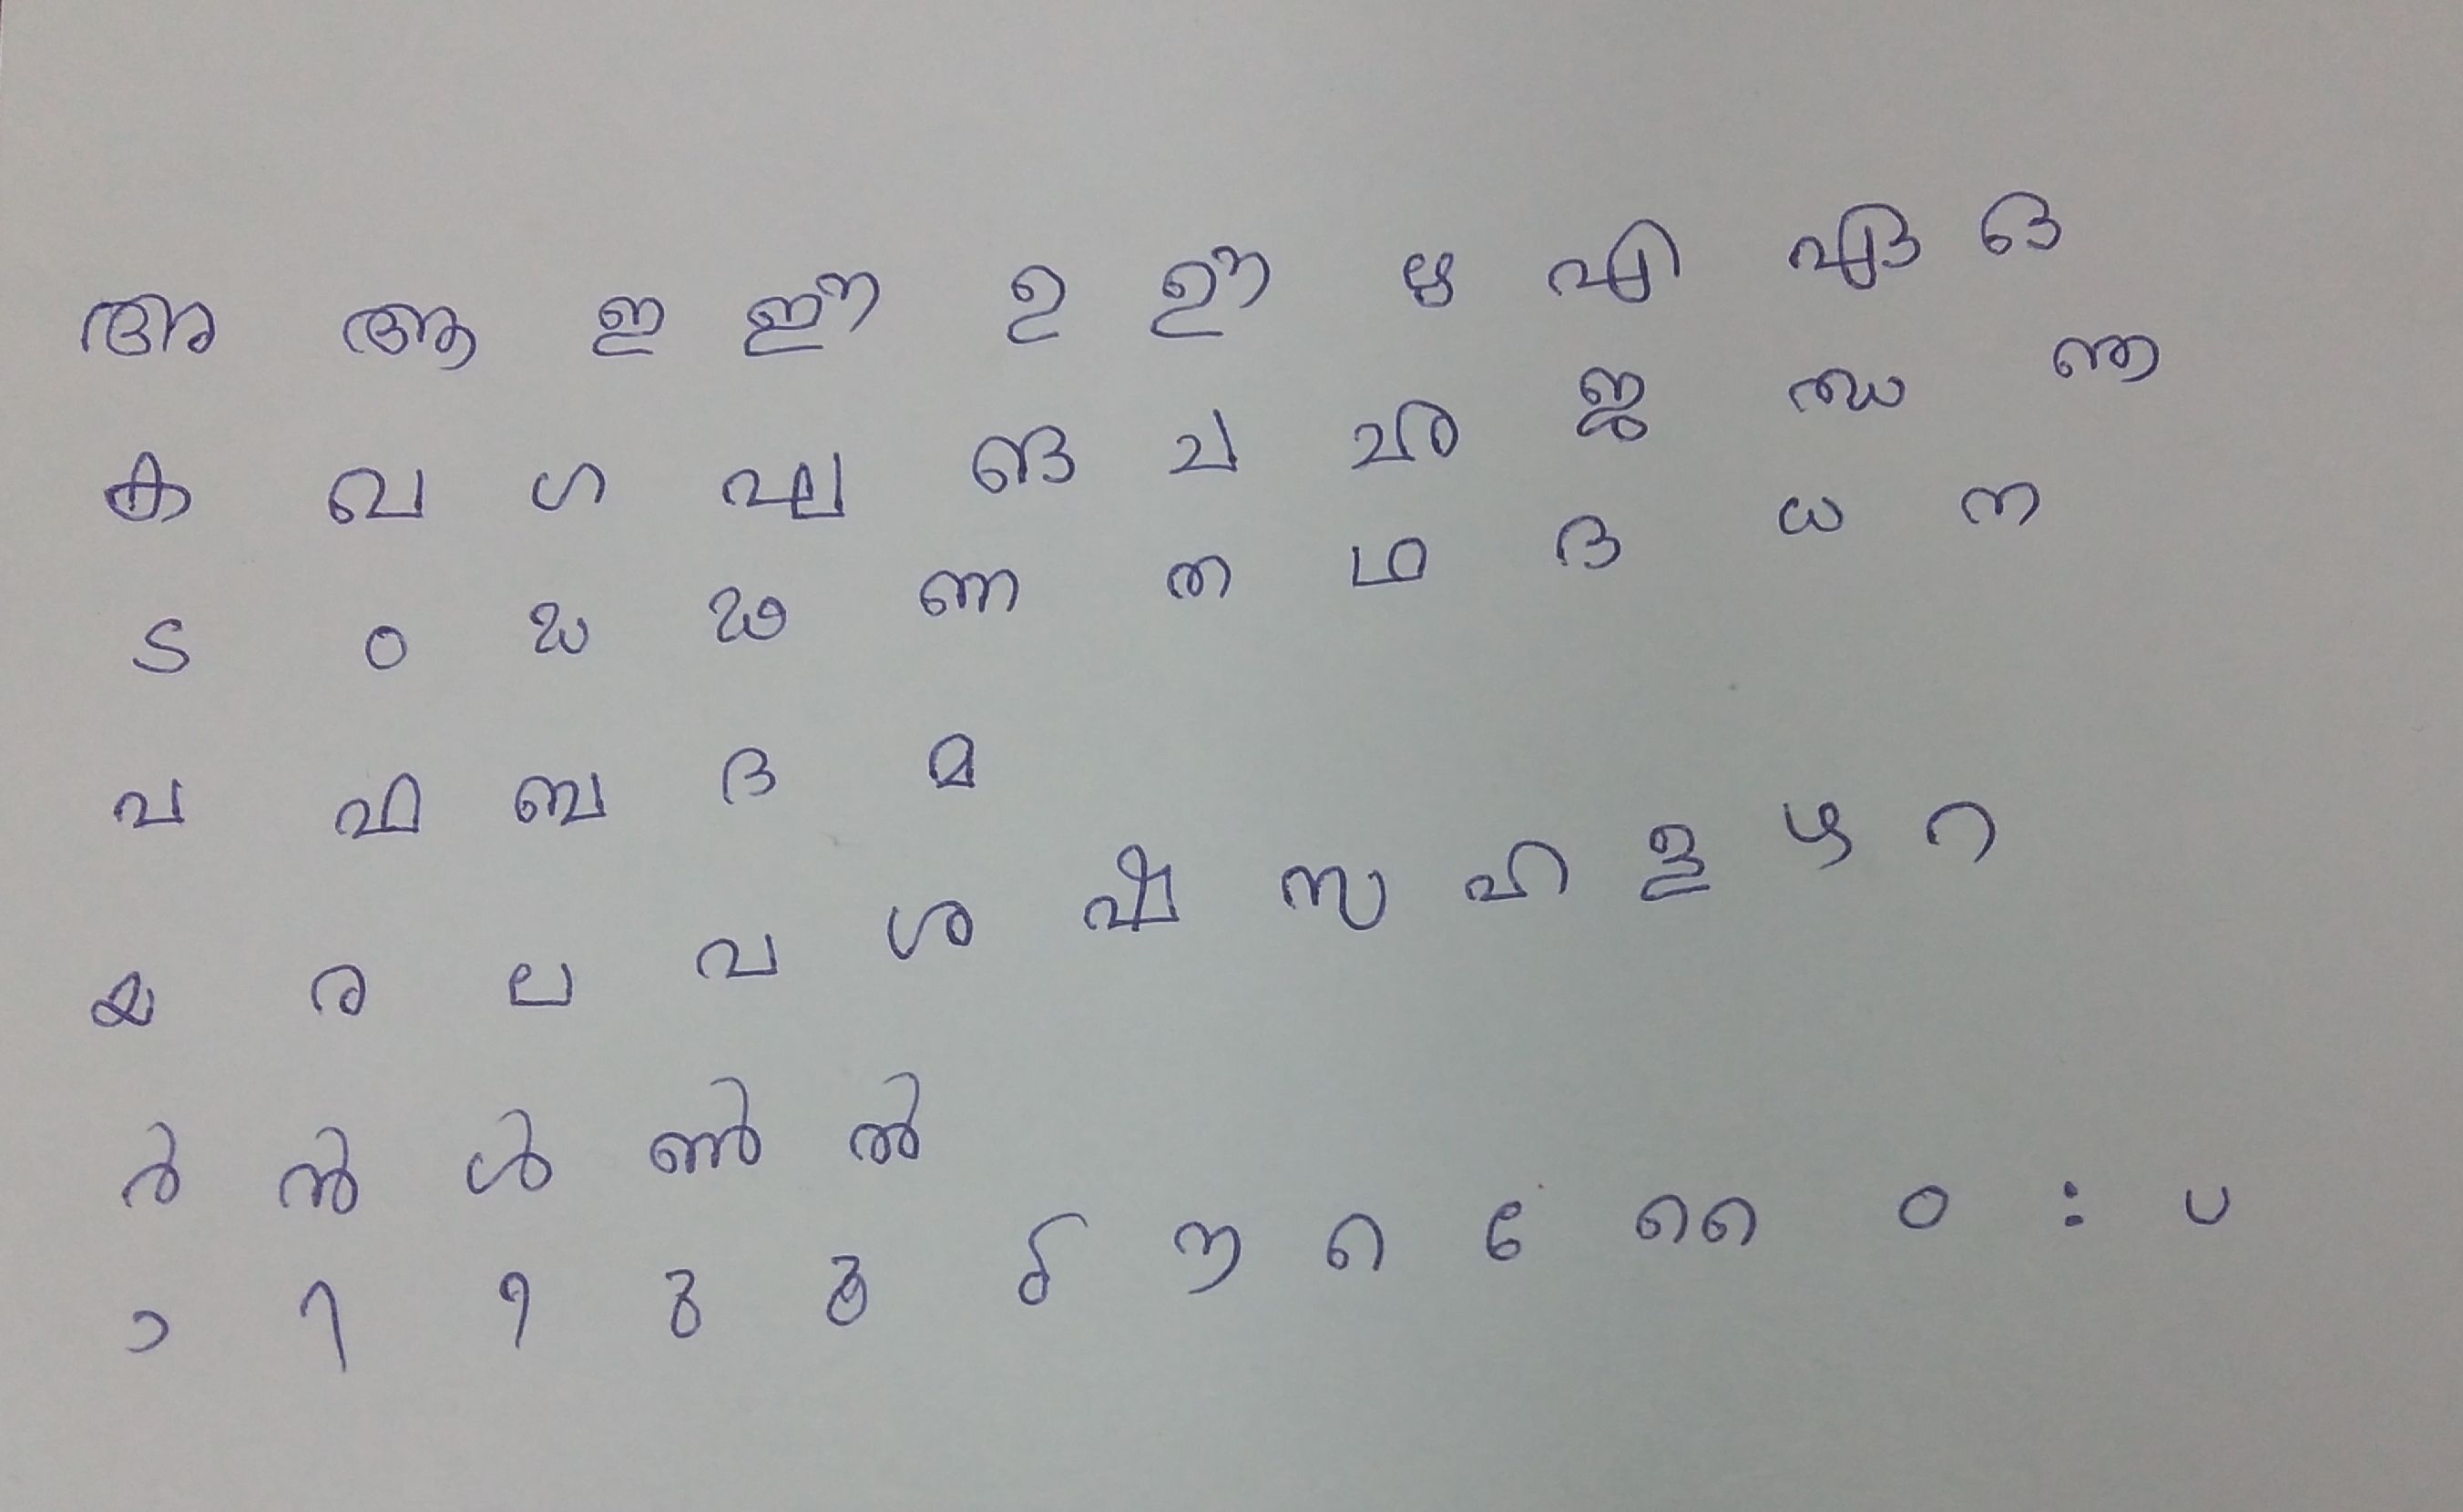 അ ആ ഇ ഈ ഉ ഊ ഋ എ ഏ ഒ
ക ഖ ഗ ഘ ങ ച ഛ ജ ഝ ഞ
ട ഠ ഡ ഢ ണ ത ഥ ദ ധ ന
പ ഫ ബ ദ മ
യ ര ല വ ശ ഷ സ ഹ ള ഴ റ
ർ ൻ ൾ ൺ ൽ
ാ ി ീ ു ൂ ൃ ൗ െ േ ൈ ം ഃ ്